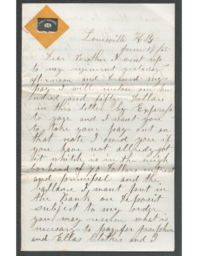 Louisville Ky
June 19 / 65
Dear Brother I went up
to my regiment yesterday
afternoon and drawed my
pay I will inclose one
hundred and fifty Dollars
in this letter by Express
to you and I want you
to take your pay out on
that note I send you if
you have not allready got
it which is in the neigh
borhood of 70 Dollars interest
and principal and the
ballance I want put in
the Bank on deposit
subject to my order
you may reserve what is
necessary to pay for
and Ellas Clothes and I